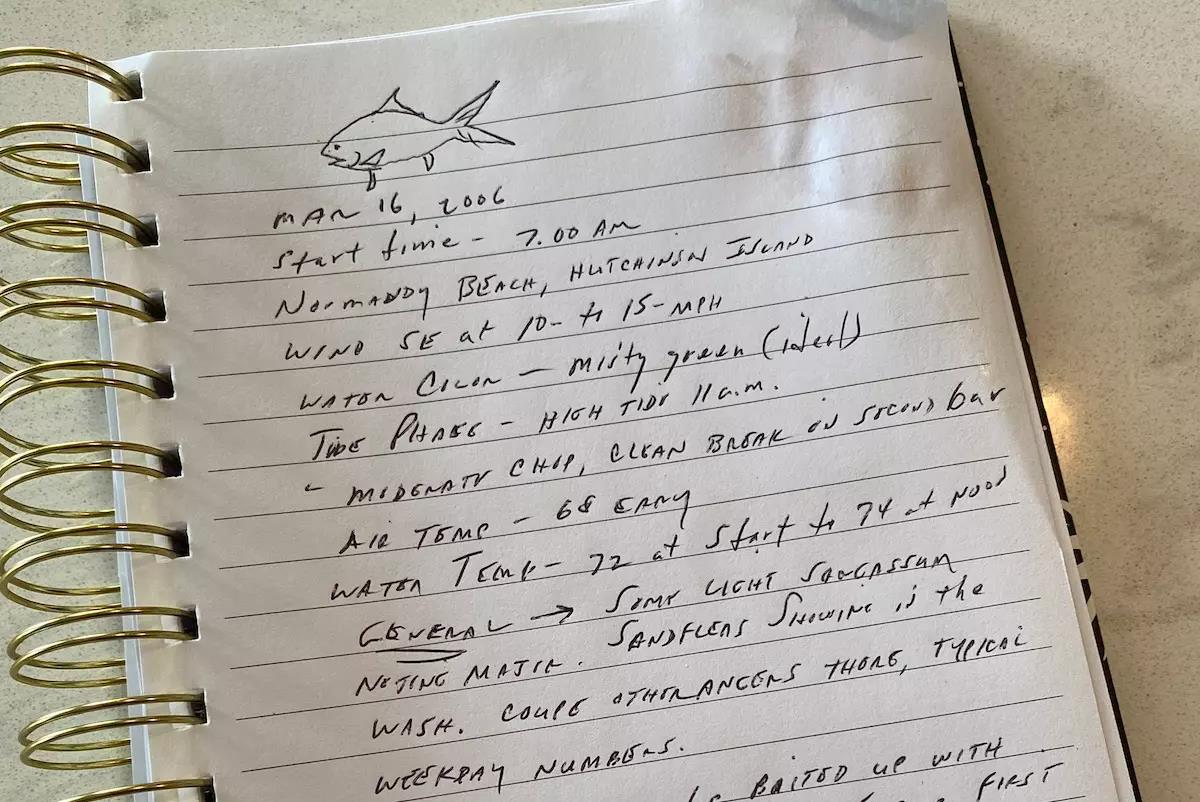 MAR 16, 2006
Start time - 7.00 AM
NORMANDY BEACH, HUTCHINSON ISLAND
WIND SE at 10- to 15-MPH
WATER COLOR - misty green (ideal)
TIDE PHASE - HIGH TIDE 11 a.m.
- MODERATE CHOP, CLEAN BREAK ON SECOND bar
AIR TEMP - 68 EARLY
WATER TEMP - 72 at start to 74 at NOON
GENERAL → SOME LIGHT SARGASSUM
NOTING MAJOR. SANDFLEAS SHOWING in the
WASH. COUPLE OTHER ANGERS THERE, TYPICAL
WEEKDAY NUMBERS.
BAITED UP WITH
FIRST